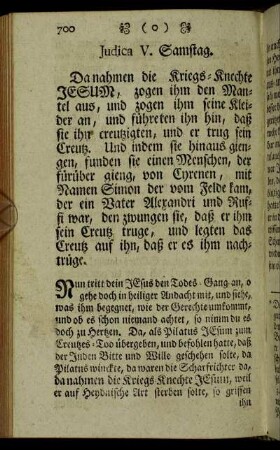 700 ( o )
Judica V. Samstag.
Da nahmen die Kriegs-Knechte
JESUM, zogen ihm den Man-
tel aus, und zogen ihm seine Klei-
der an, und führeten ihn hin, daß
sie ihn creutzigten, und er trug sein
Creutz. Und indem sie hinaus gien-
gen, funden sie einen Menschen, der
fürüber gieng, von Cyrenen, mit
Namen Simon der vom Felde kam,
der ein Vater Alexandri und Ruf-
fi war, den zwungen sie, daß er ihm
sein Creutz truge, und legten das
Creutz auf ihn, daß er es ihm nach-
trüge.
Nun tritt dein JEsus den Todes-Gang an, o
gehe doch in heiliger Andacht mit, und siehe,
was ihm begegnet, wie der Gerechte umkommt,
und ob es schon niemand achtet, so nimm du es
doch zu Hertzen. Da, als Pilatus JEsum zum
Creutzes-Tod übergeben, und befohlen hatte, daß
der Juden Bitte und Wille geschehen solte, da
Pilatus winckte, da waren die Scharfrichter da,
da nahmen die Kriegs-Knechte JEsum, weil
er auf Heydnische Art sterben solte, so griffen
ihn